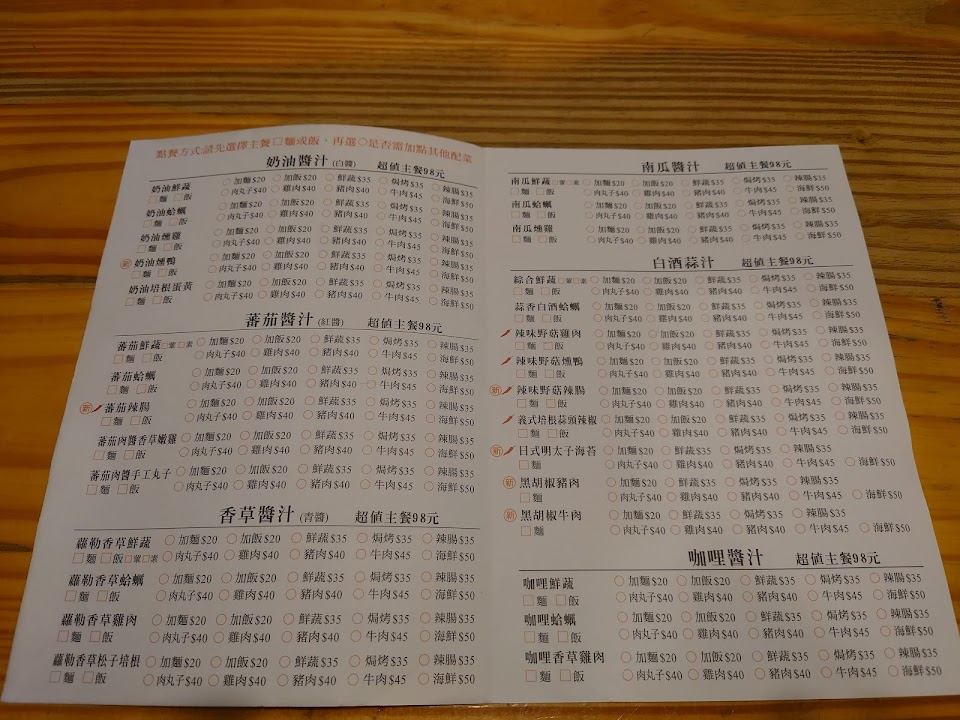 點餐方式:請先選擇主餐□麵或飯、再選○是否需加點其他配菜
奶油醬汁(白醬) 超値主餐98元
奶油鮮蔬 ○加麵$20 ○加飯$20 ○鮮蔬$35 ○焗烤$35 ○辣腸$35
□麵 □飯 ○肉丸子$40 ○雞肉$40 ○豬肉$40 ○牛肉$45 ○海鮮$50
奶油蛤蠣 ○加麵$20 ○加飯$20 ○鮮蔬$35 ○焗烤$35 ○辣腸$35
□麵 □飯 ○肉丸子$40 ○雞肉$40 ○豬肉$40 ○牛肉$45 ○海鮮$50
奶油燻雞 ○加麵$20 ○加飯$20 ○鮮蔬$35 ○焗烤$35 ○辣腸$35
□麵 □飯 ○肉丸子$40 ○雞肉$40 ○豬肉$40 ○牛肉$45 ○海鮮$50
新 奶油燻鴨 ○加麵$20 ○加飯$20 ○鮮蔬$35 ○焗烤$35 ○辣腸$35
□麵 □飯 ○肉丸子$40 ○雞肉$40 ○豬肉$40 ○牛肉$45 ○海鮮$50
奶油培根蛋黃 ○加麵$20 ○加飯$20 ○鮮蔬$35 ○焗烤$35 ○辣腸$35
□麵 □飯 ○肉丸子$40 ○雞肉$40 ○豬肉$40 ○牛肉$45 ○海鮮$50
蕃茄醬汁(紅醬) 超値主餐98元
蕃茄鮮蔬□葷□素 ○加麵$20 ○加飯$20 ○鮮蔬$35 ○焗烤$35 ○辣腸$35
□麵 □飯 ○肉丸子$40 ○雞肉$40 ○豬肉$40 ○牛肉$45 ○海鮮$50
蕃茄蛤蠣 ○加麵$20 ○加飯$20 ○鮮蔬$35 ○焗烤$35 ○辣腸$35
□麵 □飯 ○肉丸子$40 ○雞肉$40 ○豬肉$40 ○牛肉$45 ○海鮮$50
新 蕃茄辣腸 ○加麵$20 ○加飯$20 ○鮮蔬$35 ○焗烤$35 ○辣腸$35
□麵 □飯 ○肉丸子$40 ○雞肉$40 ○豬肉$40 ○牛肉$45 ○海鮮$50
蕃茄肉醬香草嫩雞 ○加麵$20 ○加飯$20 ○鮮蔬$35 ○焗烤$35 ○辣腸$35
□麵 □飯 ○肉丸子$40 ○雞肉$40 ○豬肉$40 ○牛肉$45 ○海鮮$50
蕃茄肉醬手工丸子 ○加麵$20 ○加飯$20 ○鮮蔬$35 ○焗烤$35 ○辣腸$35
□麵 □飯 ○肉丸子$40 ○雞肉$40 ○豬肉$40 ○牛肉$45 ○海鮮$50
香草醬汁(青醬) 超値主餐98元
蘿勒香草鮮蔬 ○加麵$20 ○加飯$20 ○鮮蔬$35 ○焗烤$35 ○辣腸$35
□麵 □飯□葷□素 ○肉丸子$40 ○雞肉$40 ○豬肉$40 ○牛肉$45 ○海鮮$50
蘿勒香草蛤蠣 ○加麵$20 ○加飯$20 ○鮮蔬$35 ○焗烤$35 ○辣腸$35
□麵 □飯 ○肉丸子$40 ○雞肉$40 ○豬肉$40 ○牛肉$45 ○海鮮$50
蘿勒香草雞肉 ○加麵$20 ○加飯$20 ○鮮蔬$35 ○焗烤$35 ○辣腸$35
□麵 □飯 ○肉丸子$40 ○雞肉$40 ○豬肉$40 ○牛肉$45 ○海鮮$50
蘿勒香草松子培根 ○加麵$20 ○加飯$20 ○鮮蔬$35 ○焗烤$35 ○辣腸$35
□麵 □飯 ○肉丸子$40 ○雞肉$40 ○豬肉$40 ○牛肉$45 ○海鮮$50
南瓜醬汁 超値主餐98元
南瓜鮮蔬□葷□素 ○加麵$20 ○加飯$20 ○鮮蔬$35 ○焗烤$35 ○辣腸$35
□麵 □飯 ○肉丸子$40 ○雞肉$40 ○豬肉$40 ○牛肉$45 ○海鮮$50
南瓜蛤蠣 ○加麵$20 ○加飯$20 ○鮮蔬$35 ○焗烤$35 ○辣腸$35
□麵 □飯 ○肉丸子$40 ○雞肉$40 ○豬肉$40 ○牛肉$45 ○海鮮$50
南瓜燻雞 ○加麵$20 ○加飯$20 ○鮮蔬$35 ○焗烤$35 ○辣腸$35
□麵 □飯 ○肉丸子$40 ○雞肉$40 ○豬肉$40 ○牛肉$45 ○海鮮$50
白酒蒜汁 超値主餐98元
綜合鮮蔬□葷□素 ○加麵$20 ○加飯$20 ○鮮蔬$35 ○焗烤$35 ○辣腸$35
□麵 □飯 ○肉丸子$40 ○雞肉$40 ○豬肉$40 ○牛肉$45 ○海鮮$50
蒜香白酒蛤蠣 ○加麵$20 ○加飯$20 ○鮮蔬$35 ○焗烤$35 ○辣腸$35
□麵 □飯 ○肉丸子$40 ○雞肉$40 ○豬肉$40 ○牛肉$45 ○海鮮$50
辣味野菇雞肉 ○加麵$20 ○加飯$20 ○鮮蔬$35 ○焗烤$35 ○辣腸$35
□麵 □飯 ○肉丸子$40 ○雞肉$40 ○豬肉$40 ○牛肉$45 ○海鮮$50
辣味野菇燻鴨 ○加麵$20 ○加飯$20 ○鮮蔬$35 ○焗烤$35 ○辣腸$35
□麵 □飯 ○肉丸子$40 ○雞肉$40 ○豬肉$40 ○牛肉$45 ○海鮮$50
新 辣味野菇辣腸 ○加麵$20 ○加飯$20 ○鮮蔬$35 ○焗烤$35 ○辣腸$35
□麵 □飯 ○肉丸子$40 ○雞肉$40 ○豬肉$40 ○牛肉$45 ○海鮮$50
義式培根蒜頭辣椒 ○加麵$20 ○加飯$20 ○鮮蔬$35 ○焗烤$35 ○辣腸$35
□麵 □飯 ○肉丸子$40 ○雞肉$40 ○豬肉$40 ○牛肉$45 ○海鮮$50
新 日式明太子海苔 ○加麵$20 ○加飯$20 ○鮮蔬$35 ○焗烤$35 ○辣腸$35
□麵 ○肉丸子$40 ○雞肉$40 ○豬肉$40 ○牛肉$45 ○海鮮$50
新 黑胡椒豬肉 ○加麵$20 ○加飯$20 ○鮮蔬$35 ○焗烤$35 ○辣腸$35
□麵 ○肉丸子$40 ○雞肉$40 ○豬肉$40 ○牛肉$45 ○海鮮$50
新 黑胡椒牛肉 ○加麵$20 ○加飯$20 ○鮮蔬$35 ○焗烤$35 ○辣腸$35
□麵 ○肉丸子$40 ○雞肉$40 ○豬肉$40 ○牛肉$45 ○海鮮$50
咖哩醬汁 超値主餐98元
咖哩鮮蔬 ○加麵$20 ○加飯$20 ○鮮蔬$35 ○焗烤$35 ○辣腸$35
□麵 □飯 ○肉丸子$40 ○雞肉$40 ○豬肉$40 ○牛肉$45 ○海鮮$50
咖哩蛤蠣 ○加麵$20 ○加飯$20 ○鮮蔬$35 ○焗烤$35 ○辣腸$35
□麵 □飯 ○肉丸子$40 ○雞肉$40 ○豬肉$40 ○牛肉$45 ○海鮮$50
咖哩香草雞肉 ○加麵$20 ○加飯$20 ○鮮蔬$35 ○焗烤$35 ○辣腸$35
□麵 □飯 ○肉丸子$40 ○雞肉$40 ○豬肉$40 ○牛肉$45 ○海鮮$50